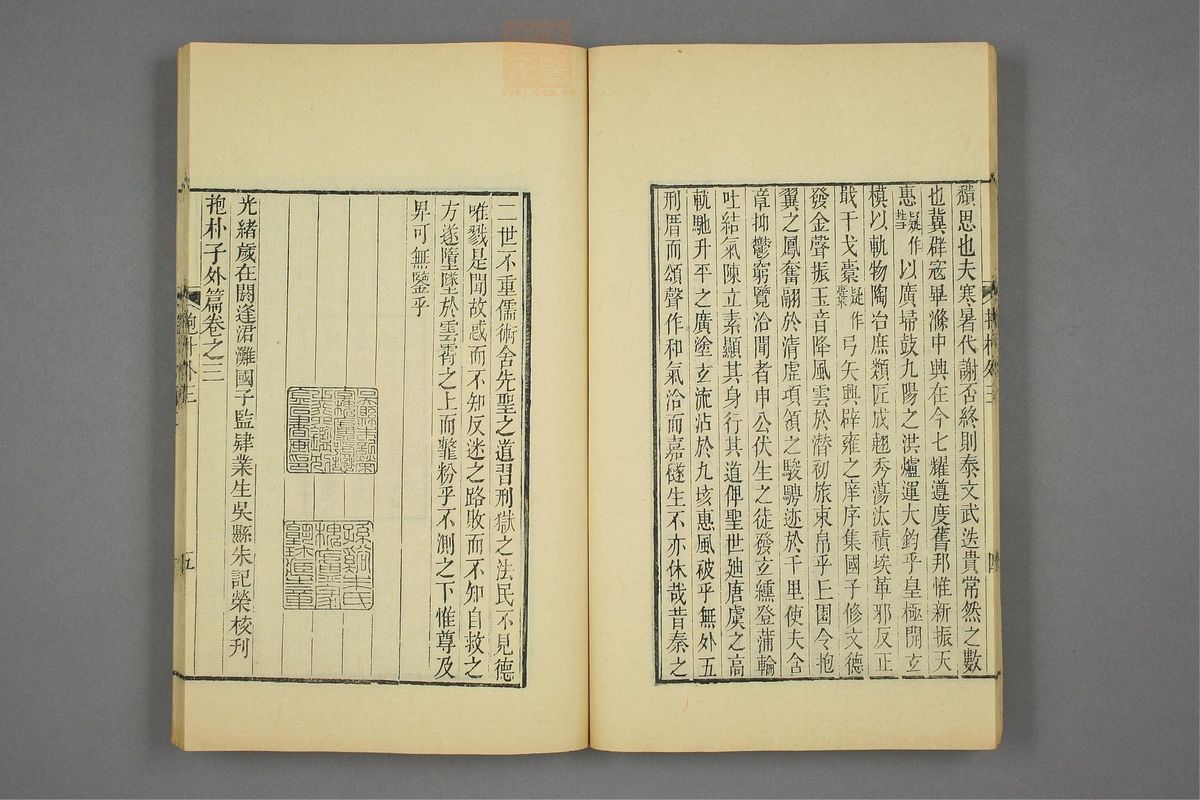 積思也夫寒暑代謝否終則泰文武迭貴常然之數
也冀群寇畢滌中興在今七耀遵度舊邦惟新振天
惠疑作彗以廣埽鼓九陽之洪爐運大鈞乎皇極開玄
模以軌物陶冶庶類匠成翹秀蕩汰積埃革邪反正
戢干戈橐疑作櫜弓矢興辟雍之庠序集國子修文德
發金聲振玉音降風雲於潛初旅束帛乎丘園令抱
翼之鳳奮翮於清虛項領之駿騁迹於千里使夫含
章抑鬱窮覽洽聞者申公伏生之徒發玄纁登蒲輪
吐結氣陳立素顯其身行其道俾聖世迪唐虞之高
軌馳升平之廣塗玄流沾於九垓惠風被乎無外五
刑厝而頌聲作和氣洽而嘉穟生不亦休哉昔秦之
抱朴外三
四
二世不重儒術舍先聖之道習刑獄之法民不見德
唯戮是聞故惑而不知反迷之路敗而不知自救之
方遂墮墜於雲霄之上而虀粉乎不測之下惟尊及
卑可無鑒乎
光緒歲在閼逢涒灘國子監肄業生吳縣朱記榮校刊
抱朴子外篇卷之三
抱朴外三
五